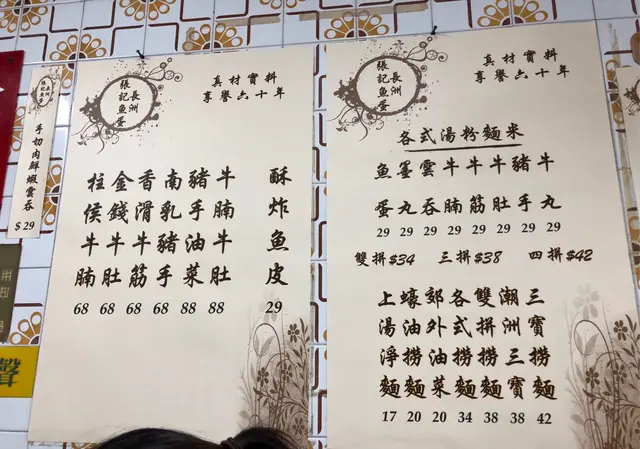 長洲
張記魚蛋
手切肉鮮蝦雲吞
$29
長洲
張記魚蛋
真材實料
享譽六十年
柱侯牛腩 68
金錢牛肚 68
香滑牛筋 68
南乳豬手 68
豬手油菜 88
牛腩牛肚 88
酥炸魚皮 29
長洲
張記魚蛋
真材實料
享譽六十年
各式湯粉麵米
魚蛋 29
墨丸 29
雲吞 29
牛腩 29
牛筋 29
牛肚 29
豬手 29
牛丸 29
雙拼$34 三拼$38 四拼$42
上湯淨麵 17
蠔油撈麵 20
郊外油菜 20
各式撈麵 34
雙拼撈麵 38
潮洲三寶 38
三寶撈麵 42
用
聲